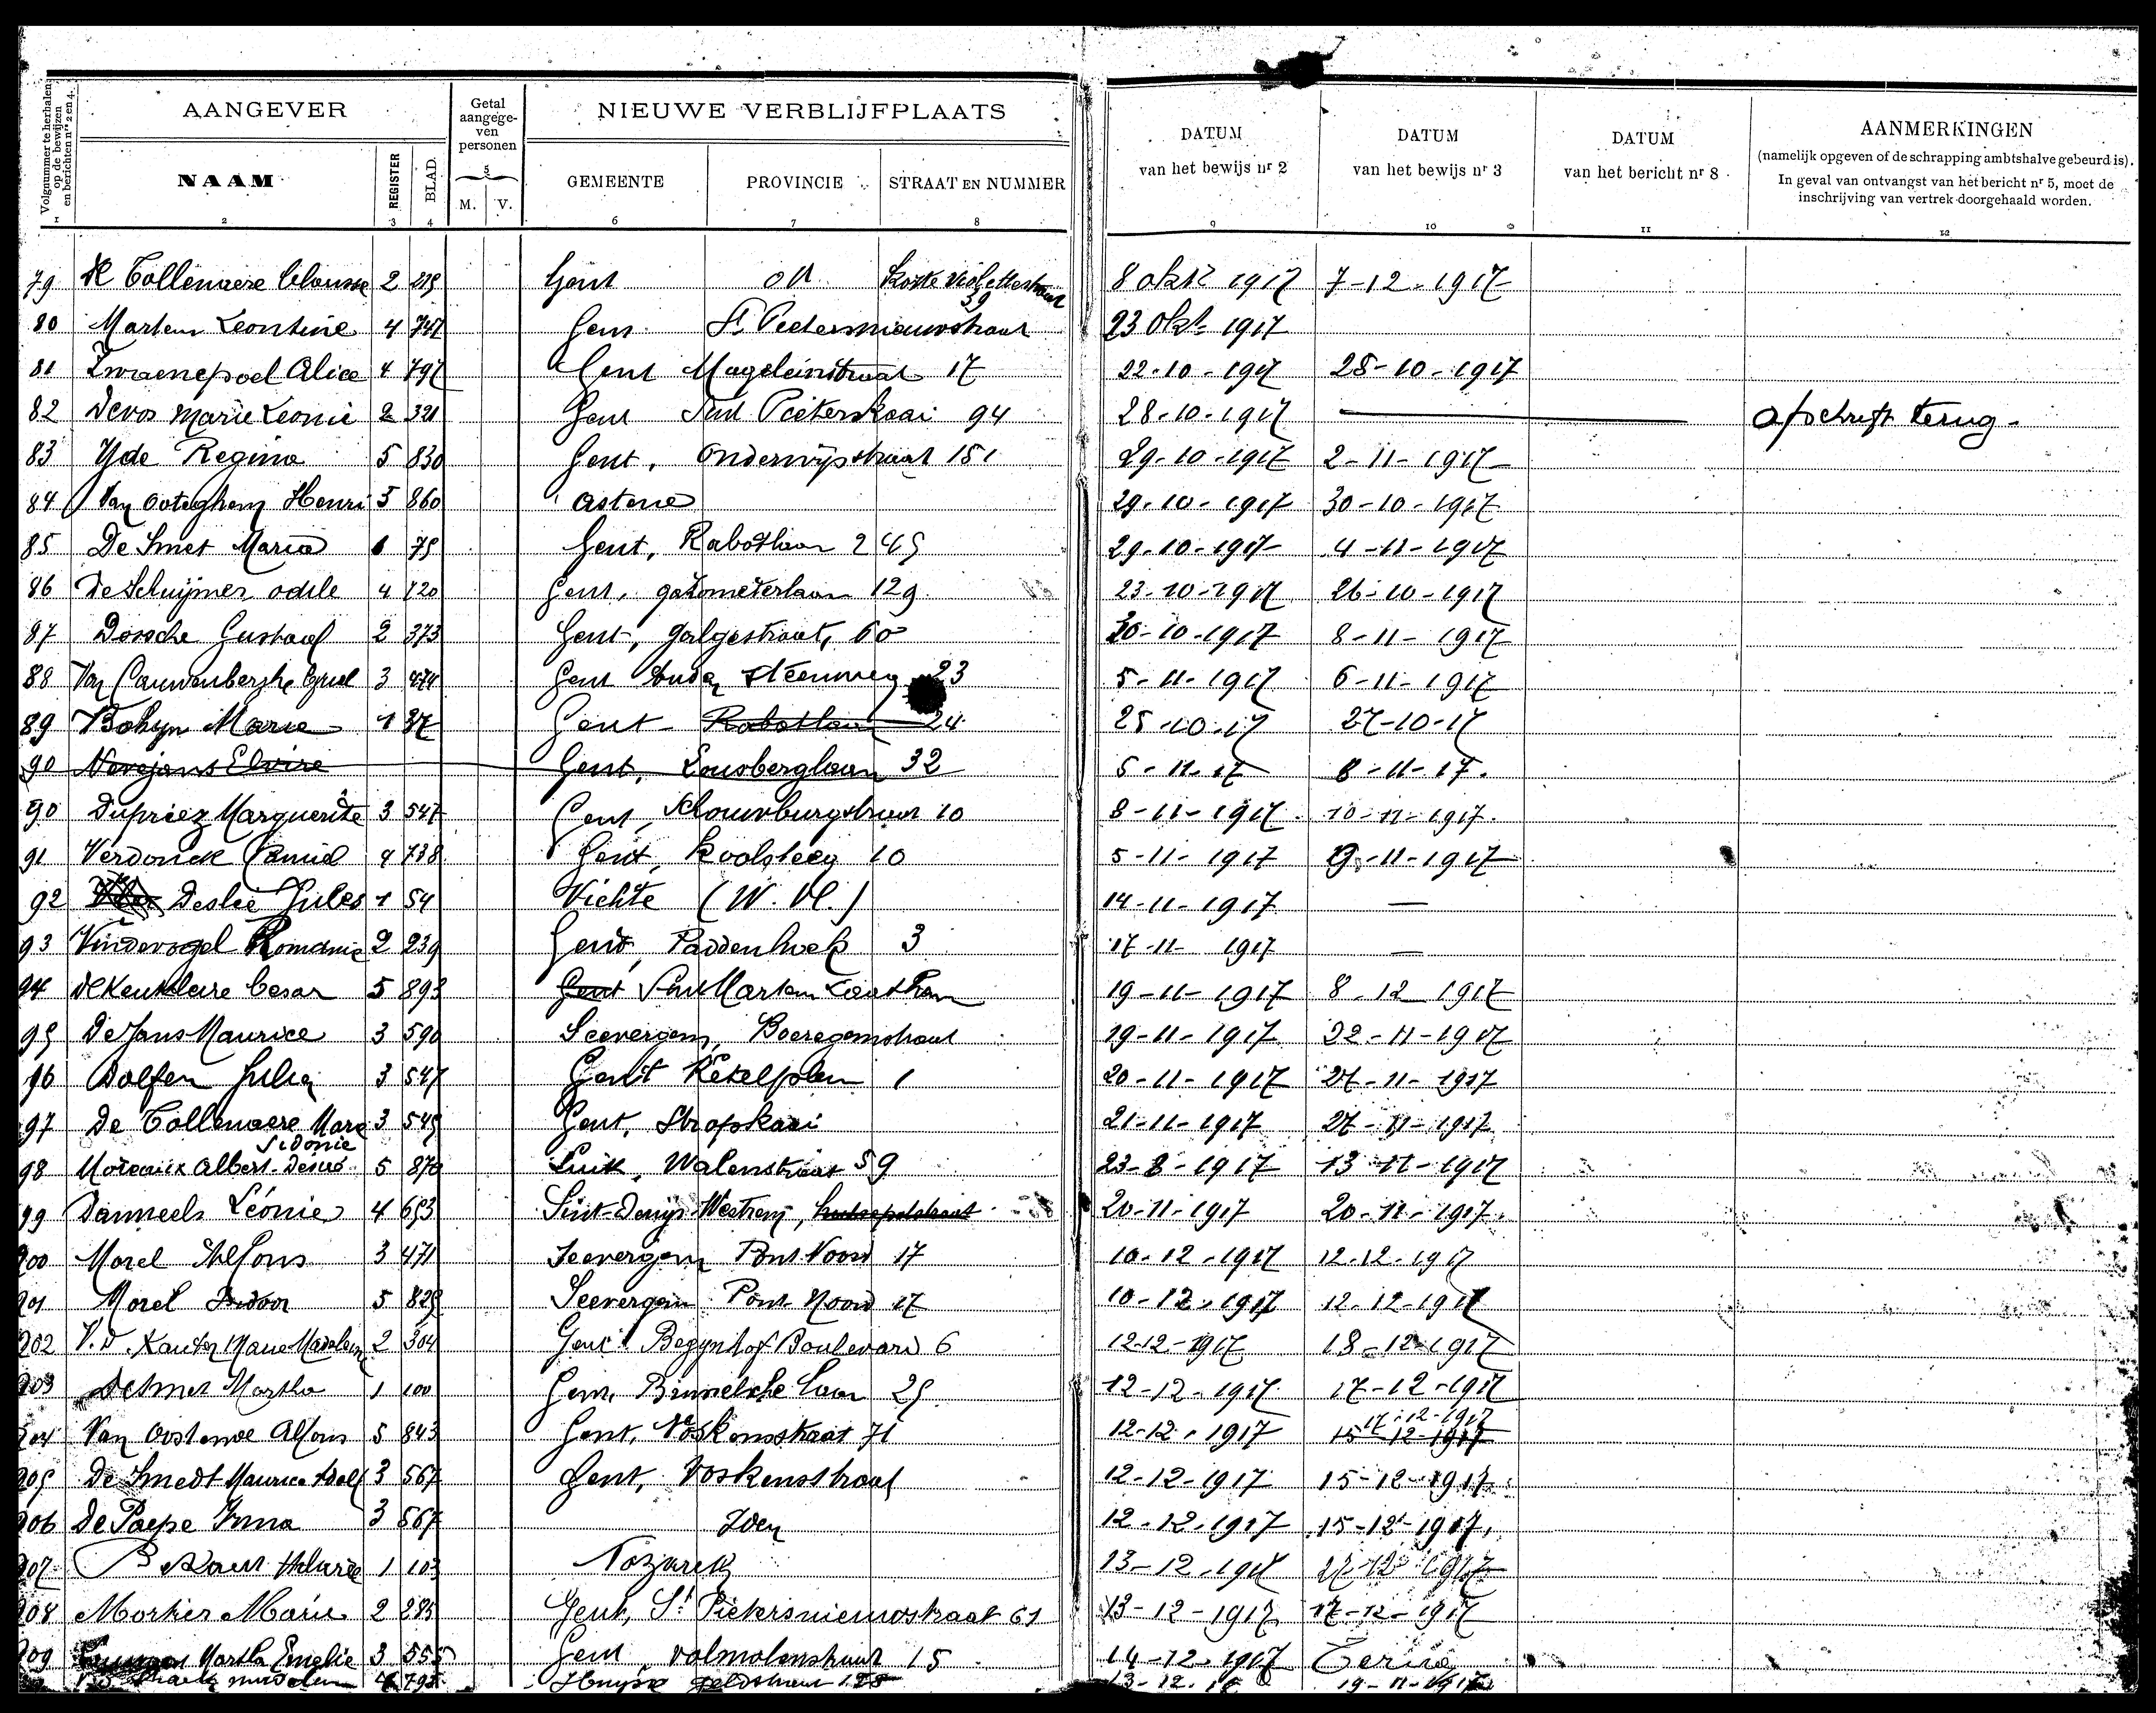 Volgnummer te herhalen op de bewijzen en berichten nrs 2 en 4.
AANGEVER
Getal aangegeven personen
NIEUWE VERBLIJFPLAATS
DATUM van het bewijs nr 2
DATUM van het bewijs nr 3
DATUM van het bericht nr 8
AANMERKINGEN
(namelijk opgeven of de schrapping ambtshalve gebeurd is).
In geval van ontvangst van het bericht nr 5, moet de
inschrijving van vertrek doorgehaald worden.
NAAM REGISTER BLAD. M. V. GEMEENTE PROVINCIE STRAAT EN NUMMER
1 2 3 4 5 6 7 8 9 10 11 12
79 De Tollenaere 2 Gent Korte Violettestraat 39 8 okt 1917 7-12-1917
80 Martens Leontine 4 747 Gent St Pietersnieuwstraat 23 Okt 1917
81 Zwaenepoel Alice 4 797 Gent Mageleinstraat 17 22-10-1917 28-10-1917
82 Devos Marie Leonie 2 321 Gent Sint Pieterskaai 94 28-10-1917 — afschrift terug-
83 Yde Regina 5 830 Gent, Onderwijsstraat 151 29-10-1917 2-11-1917
84 Van Ooteghem Henri 5 860 Astene 29-10-1917 30-10-1917
85 De Smet Maria 75 Gent, Rabotlaan 245 29-10-1917 4-11-1917
86 De Schuijmer Odile 4 720 Gent, gazometerlaan 129 23-10-1917 26-10-1917
87 Dossche Gustaaf 2 373 Gent, galgestraat, 60 30-10-1917 8-11-1917
88 Van Cauwenberghe 3 474 Gent steenweg 23 5-11-1917 6-11-1917
89 Bohyn Maria 1 37 Gent - Rabotlaan 24 25-10-17 27-10-17
90 Nevejans Elvire Gent, Lousberglaan 32 5-11-17 8-11-17.
90 Dupriez Marguerite 3 547 Gent, Schouwburgstraat 10 8-11-1917 10-11-1917
91 Verdonck Camiel 4 738 Gent, Koolsteeg 10 5-11-1917 9-11-1917
92 Deslee Jules 1 54 Vichte (W. Vl.) 14-11-1917 —
93 Vindevogel Romanie 2 239 Gent, Paddenhoek 3 17-11-1917 —
94 De Keukelaere Cesar 5 893 Gent Sint Martens Laathem 19-11-1917 8-12-1917
95 De Jans Maurice 3 590 Seevergem, Boeregemstraat 19-11-1917 22-11-1917
96 Dolfen Julia 3 547 Gent Ketelplein 1 20-11-1917 27-11-1917
97 De Tollenaere Marie Sidonie 3 545 Gent, Stropkaai 21-11-1917 27-11-1917
98 Albert-Désiré 5 870 Luik, Walenstraat 59 23-8-1917 13-11-1917
99 Danneels Léonie 4 653 Sint-Denijs-Westrem, 20-11-1917 20-11-1917
200 Morel Alfons 3 471 Seevergem Pont Noord 17 10-12-1917 12-12-1917
201 Morel Isidoor 5 825 Seevergem Pont Noord 17 10-12-1917 12-12-1917
202 V. D. Marie Madeleine 2 304 Gent Begynhof Boulevard 6 12-12-1917 18-12-1917
203 De Smet Martha 1 100 Gent, Brusselsche laan 25 12-12-1917 17-12-1917
204 Van Oostende Alfons 5 843 Gent, Voskensstraat 71 12-12-1917 15-12-1917 17-12-1917
205 De Smedt Maurice Adolf 3 567 Gent, Voskensstraat 12-12-1917 15-12-1917
206 De Paepe Irma 3 567 Idem 12-12-1917 15-12-1917
207 1 103 Nazareth 13-12-1917
208 Mortier Marie 2 285 Gent, St Pietersnieuwstraat 61 13-12-1917 17-12-1917
209 Martha Emelie 3 555 Gent, volmolenstraat 15 14-12-1917
4 795 Huysse